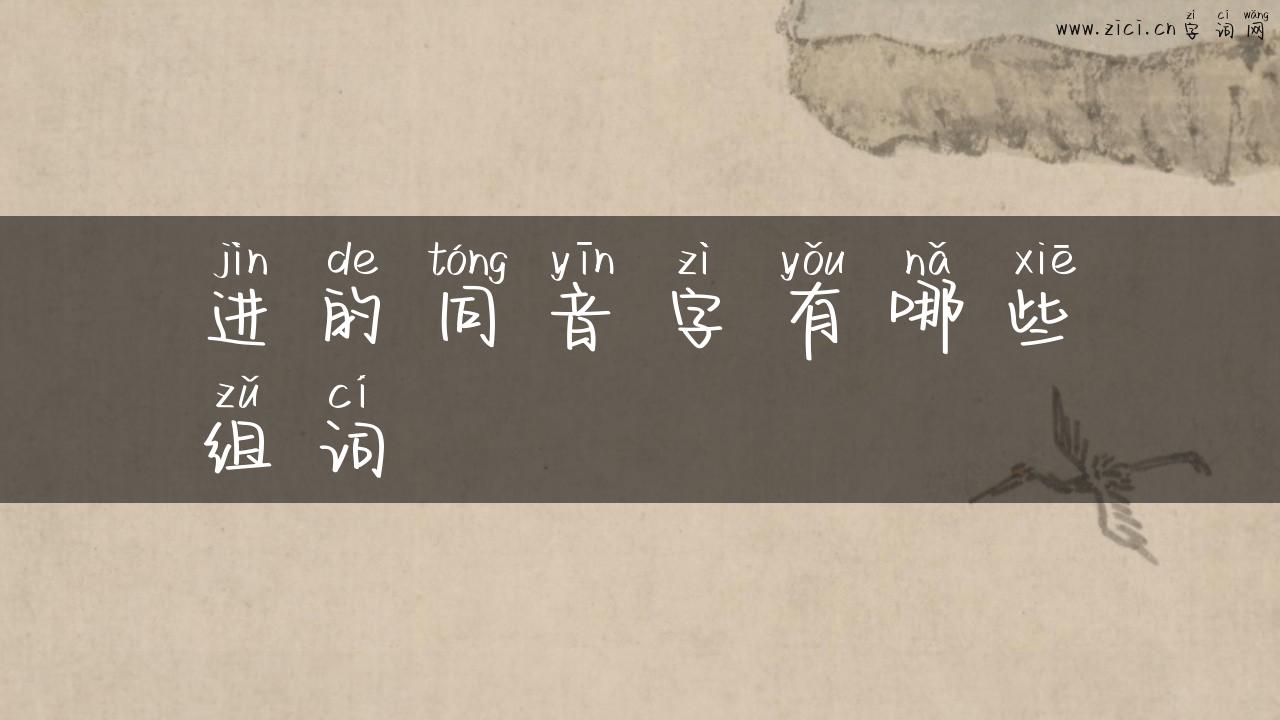 zì cí wǎng
www.zici.cn 字词网
jìn de tóng yīn zì yǒu nǎ xiē
进的同音字有哪些
zǔ cí
组词